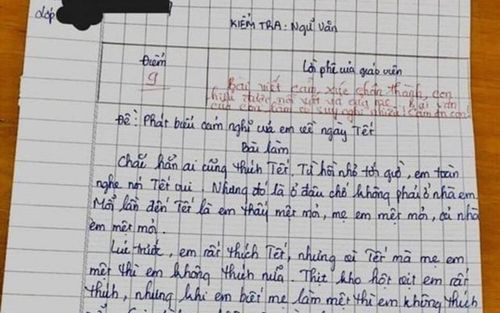 Lớp
KIỂM TRA: Ngữ Văn
Điểm
Lời phê của giáo viên
9
Bài viết cảm xúc chân thành, con
hiểu được nỗi vất vả của mẹ. Bài văn
của con làm cô suy nghĩ nhiều! Cảm ơn con!
Đề: Phát biểu cảm nghĩ của em về ngày Tết
Bài làm
Chắc hẳn ai cũng thích Tết. Từ hồi nhỏ tới giờ, em toàn
nghe nói Tết vui. Nhưng đó là ở đâu chớ không phải ở nhà em.
Mỗi lần đến Tết là em thấy mệt mỏi, mẹ em mệt mỏi, cả nhà
em mệt mỏi.
Lúc trước, em rất thích Tết, nhưng vì Tết mà mẹ em
mệt thì em không thích nữa. Thịt kho hột vịt em rất
thích, nhưng khi em biết mẹ làm mệt thì em không thích